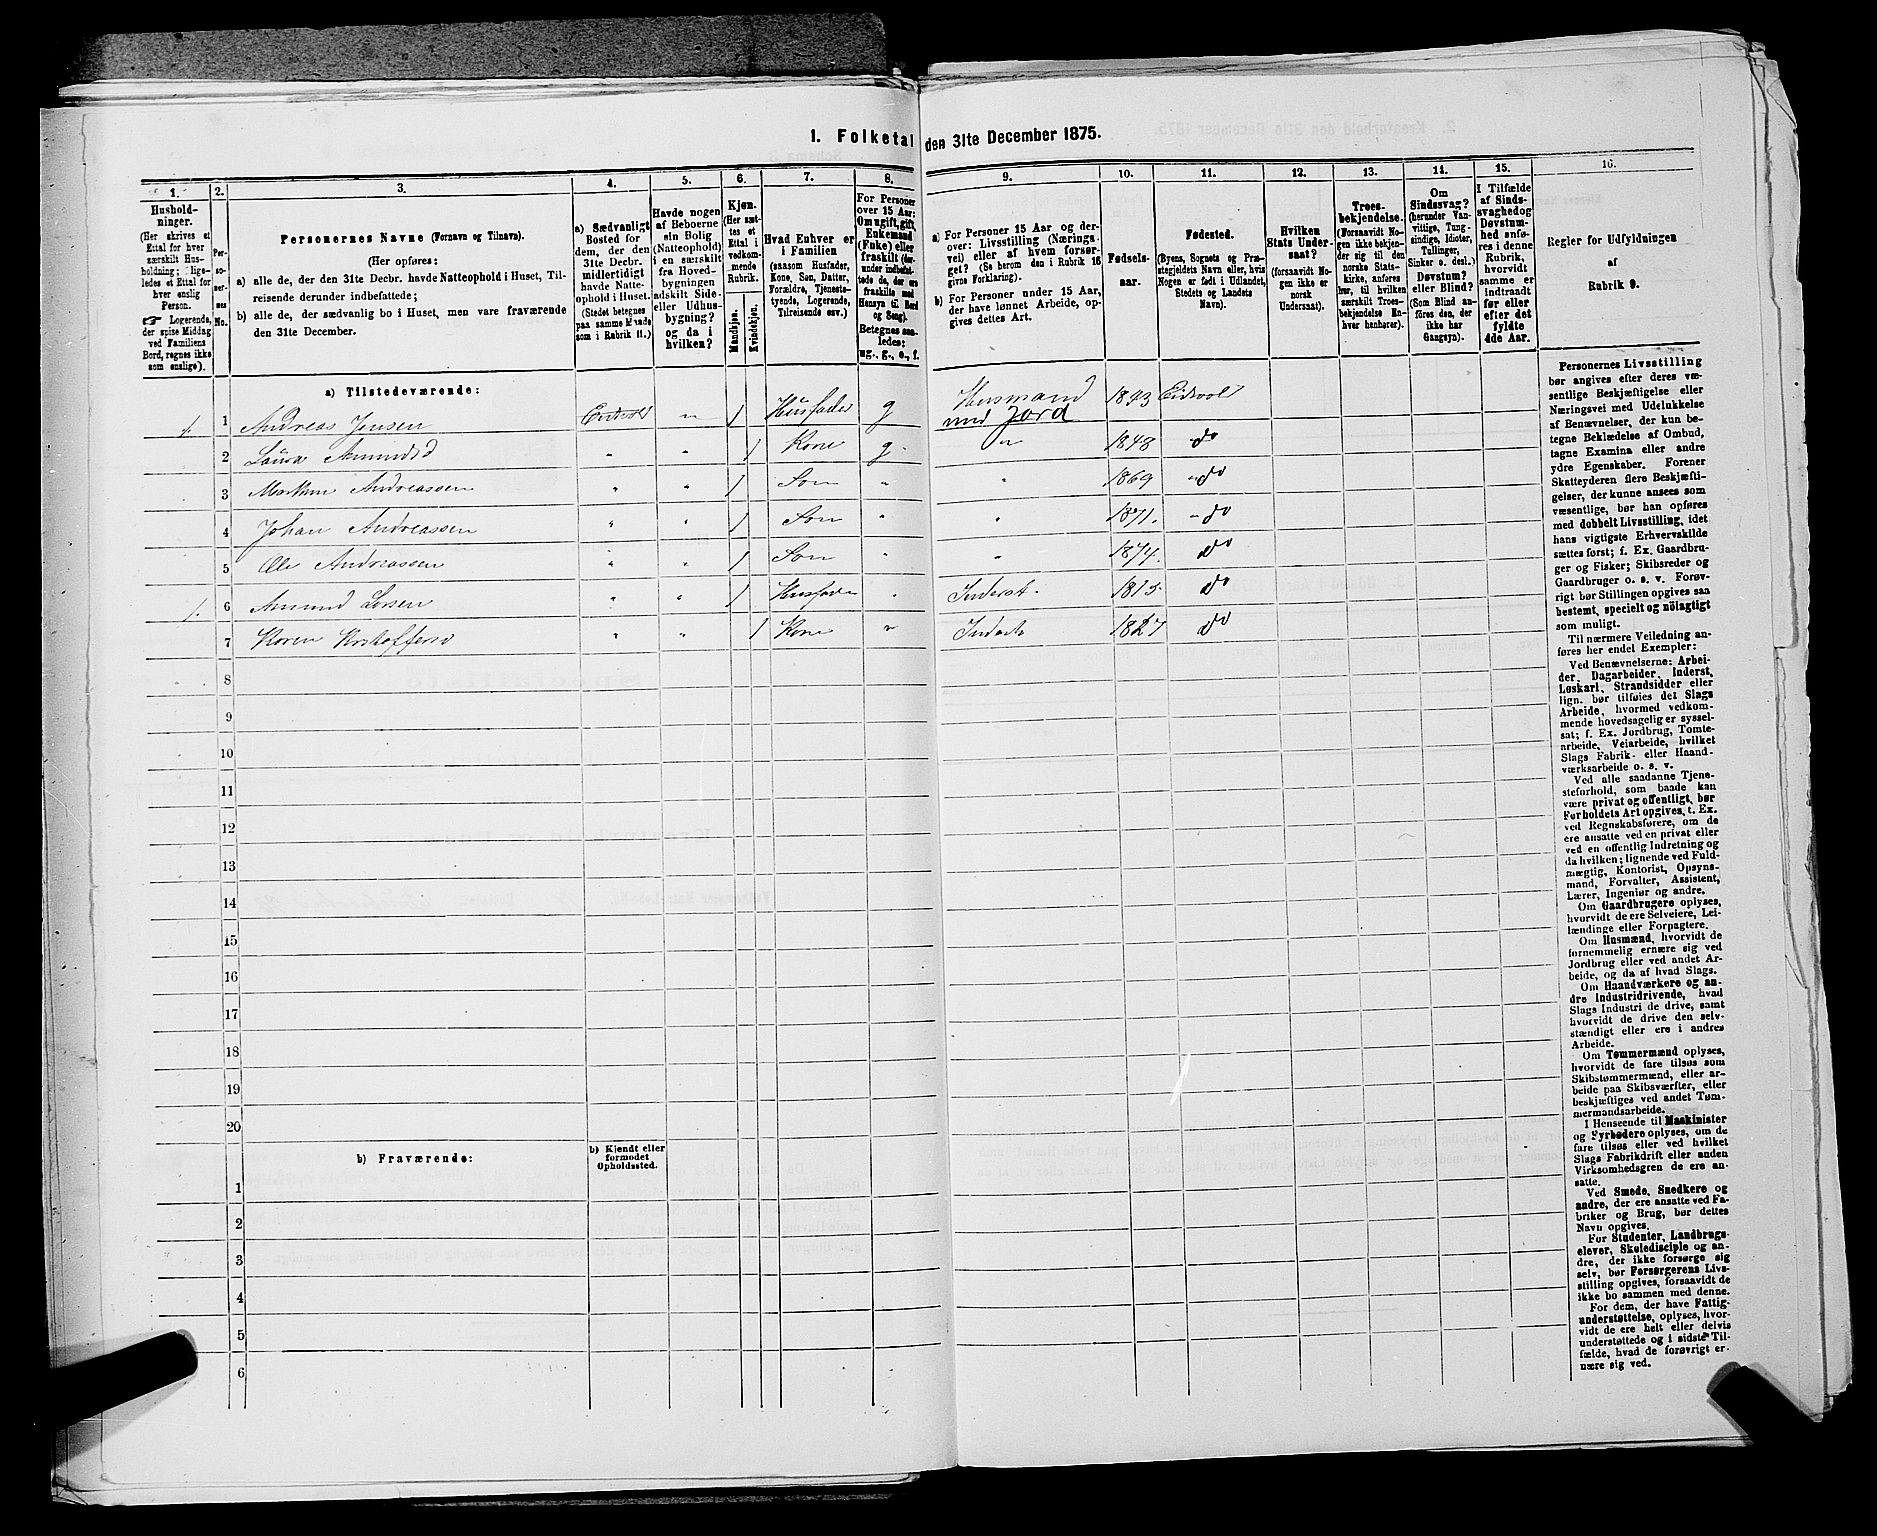 1. Folketal den 31te December 1875.
1.
2.
3.
4.
5.
6.
7.
8.
9.
10.
11.
12.
13.
14.
15.
16.
Hushold-
ninger.
(Her skrives et
Ettal for hver
særskilt Hus-
holdning; lige-
ledes et Ettal for
hver enslig
Person.
☞ Logerende,
der spise Middag
ved Familiens
Bord, regnes ikke
som enslige).
Per-
so-
ner-
nes
No.
Personernes Navne (Fornavn og Tilnavn).
(Her opføres:
a) alle de, der den 31te Decbr. havde Natteophold i Huset, Til-
reisende derunder indbefattede;
b) alle de, der sædvanlig bo i Huset, men vare fraværende
den 31te December.
a) Sædvanligt
Bosted for
dem, der den
31te Decbr.
midlertidigt
havde Natte-
ophold i Huset.
(Stedet betegnes
paa samme Maade
som i Rubrik 11.)
Havde nogen
af Beboerne
sin Bolig
(Natteophold)
i en særskilt
fra Hoved-
bygningen
adskilt Side-
eller Udhus-
bygning?
og da i
hvilken?
Kjøn.
(Her sæt-
tes et
Ettal i
vedkom-
mende
Rubrik.
Mandkjøn.
Kvindekjøn.
Hvad Enhver er
i Familien
(saasom Husfader,
Kone, Søn, Datter,
Forældre, Tjeneste-
tyende, Logerende,
Tilreisende osv.)
For Personer
over 15 Aar:
Om ugift, gift,
Enkemand
(Enke) eller
fraskilt (der-
under indbefat-
tede de, der ere
fraskilte med
Hensyn til Bord
og Seng).
Betegnes saa-
ledes:
ug., g., e., f.
a) For Personer 15 Aar og der-
over: Livsstilling (Nærings-
vei) eller af hvem forsør-
get? (Se herom den i Rubrik 16
givne Forklaring).
b) For Personer under 15 Aar,
der have lønnet Arbeide, op-
gives dettes Art.
Fødsels-
aar.
Fødested.
(Byens, Sognets og Præ-
stegjeldets Navn eller, hvis
Nogen er født i Udlandet,
Stedets og Landets
Navn).
Hvilken
Stats Under-
saat?
(forsaavidt No-
gen ikke er
norsk
Undersaat).
Troes-
bekjendelse.
(Forsaavidt No-
gen ikke bekjen-
der sig til den
norske Stats-
kirke, anføres
her, til hvilken
særskilt Troes-
bekjendelse En-
hver henhører).
Om
Sindssvag?
(herunder Van-
vittige, Tung-
sindige, Idioter,
Tullinger,
Sinker o. desl.)
Døvstum?
eller Blind?
(Som Blind an-
føres den, der
ikke har
Gangsyn).
I Tilfælde
af Sinds-
svaghed og
Døvstum-
hed anfø-
res i denne
Rubrik,
hvorvidt
samme er
indtraadt
før eller
efter det
fyldte
4de Aar.
Regler for Udfyldningen
af
Rubrik 9.
a) Tilstedeværende:
1. 1 Andreas Jensen Eidsvold " 1 Husfader g Husmand
med Jord 1843 Eidsvold
2 Laura Amundsd " " 1 Kone g. " 1848 do
3 Marthin Andreassen " " 1 Søn " " 1869 do
4 Johan Andreassen " " 1 Søn " " 1871. do
5 Ole Andreassen " " 1 Søn " " 1874. do
1. 6 Amund Larsen " " 1 Husfader " Inderst. 1815. do
7 Karen Kristoffersd " " 1 Kone " Inderste 1827 do
8
9
10
11
12
13
14
15
16
17
18
19
20
b) Fraværende:
b) Kjendt eller
formodet
Opholdssted.
1
2
3
4
5
6
Personernes Livsstilling
bør angives efter deres væ-
sentlige Beskjæftigelse eller
Næringsvei med Udelukkelse
af Benævnelser, der kun be-
tegne Beklædelse af Ombud,
tagne Examina eller andre
ydre Egenskaber. Forener
Skatteyderen flere Beskjæfti-
gelser, der kunne ansees som
væsentlige, bør han opføres
med dobbelt Livsstilling, idet
hans vigtigste Erhvervskilde
sættes først; f. Ex. Gaardbru-
ger og Fisker; Skibsreder og
Gaardbruger o. s. v. Forøv-
rigt bør Stillingen opgives saa
bestemt, specielt og nöiagtigt
som muligt.
Til nærmere Veiledning an-
føres her endel Exempler:
Ved Benævnelserne: Arbei-
der, Dagarbeider, Inderst,
Løskarl, Strandsidder eller
lign. bør tilføies det Slags
Arbeide, hvormed vedkom-
mende hovedsagelig er syssel-
sat; f. Ex. Jordbrug, Tomte-
arbeide, Veiarbeide, hvilket
Slags Fabrik- eller Haand-
værksarbeide o. s. v.
Ved alle saadanne Tjene-
steforhold, som baade kan
være privat og offentligt, bør
Forholdets Art opgives, t. Ex.
ved Regnskabsførere, om de
ere ansatte ved en privat eller
ved en offentlig Indretning og
da hvilken; lignende ved Fuld-
mægtig, Kontorist, Opsyns-
mand, Forvalter, Assistent,
Lærer, Ingeniør og andre.
Om Gaardbrugere oplyses,
hvorvidt de ere Selveiere, Lei-
lændinge eller Forpagtere.
Om Husmænd, hvorvidt de
fornemmelig ernære sig ved
Jordbrug eller ved andet Ar-
beide, og da af hvad Slags.
Om Haandværkere og an-
dre Industridrivende, hvad
Slags Industri de drive, samt
hvorvidt de drive den selv-
stændigt eller ere i andres
Arbeide.
Om Tømmermænd oplyses,
hvorvidt de fare tilsøs som
Skibstømmermænd, eller ar-
beide paa Skibsværfter, eller
beskjæftiges ved andet Tøm-
mermandsarbeide.
I Henseende til Maskinister
og Fyrbødere oplyses, om de
fare tilsøs eller ved hvilket
Slags Fabrikdrift eller anden
Virksomhedsgren de ere an-
satte.
Ved Smede, Snedkere og
andre, der ere ansatte ved Fa-
briker og Brug, bør dettes
Navn opgives.
For Studenter, Landbrugs-
elever, Skoledisciple og an-
dre, der ikke forsørge sig
selv, bør Forsørgerens Livs-
stilling opgives, forsaavidt de
ikke bo sammen med denne.
For dem, der have Fattig-
understøttelse, oplyses, hvor-
vidt de ere helt eller delvis
understøttede og i sidste Til-
fælde, hvad de forøvrigt er-
nære sig ved.